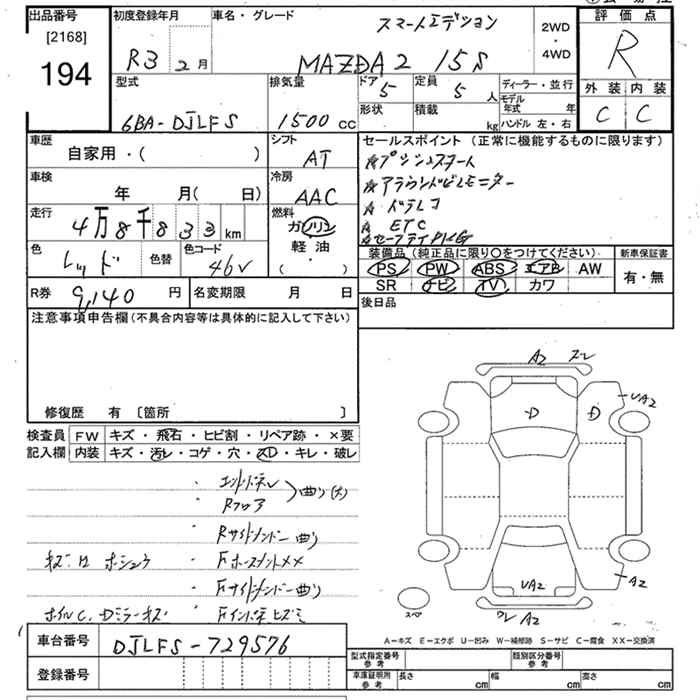 出品番号
[2168]
194
初度登録年月
R3 2月
車名・グレード
スマートエディション
MAZDA2 15S
2WD
・
4WD
評価点
R
外装 内装
C C
型式
6BA-DJLFS
排気量
1500 CC
ドア 5
定員 5 人
形状
積載 kg
ディーラー・並行
モデル年式 年
ハンドル 左・右
車歴
自家用・( )
シフト
AT
車検
年 月( 日)
冷房
AAC
走行
4万8千833km
燃料
ガソリン
軽油
・
( )
色
レッド
色替
色コード
46V
R券 9,140 円
名変期限 月 日
セールスポイント（正常に機能するものに限ります）
☆プッシュスタート
☆アラウンドビューモニター
☆ドラレコ
☆ETC
装備品（純正品に限り〇をつけてください）
PS PW ABS エアB AW
SR ナビ TV カワ
新車保証書
有・無
後日品
注意事項申告欄（不具合内容等は具体的に記入して下さい）
修復歴 有 [箇所 ]
検査員記入欄
FW キズ・飛石・ヒビ割・リペア跡・×要
内装 キズ・汚レ・コゲ・穴・スD・キレ・破レ
・エンドパネル
・Rフロア
曲り(大)
・Rサイドメンバー曲り
・Fサイドメンバー曲り
A2
D
D
UA2
UA2
A2
A2
スペ
車台番号
DJLFS-729576
登録番号
A－キズ E－エクボ U－凹み W－補修跡 S－サビ C－腐食 XX－交換済
型式指定番号
参考
類別区分番号
参考
車庫証明用
参考
長さ cm
幅 cm
高さ cm